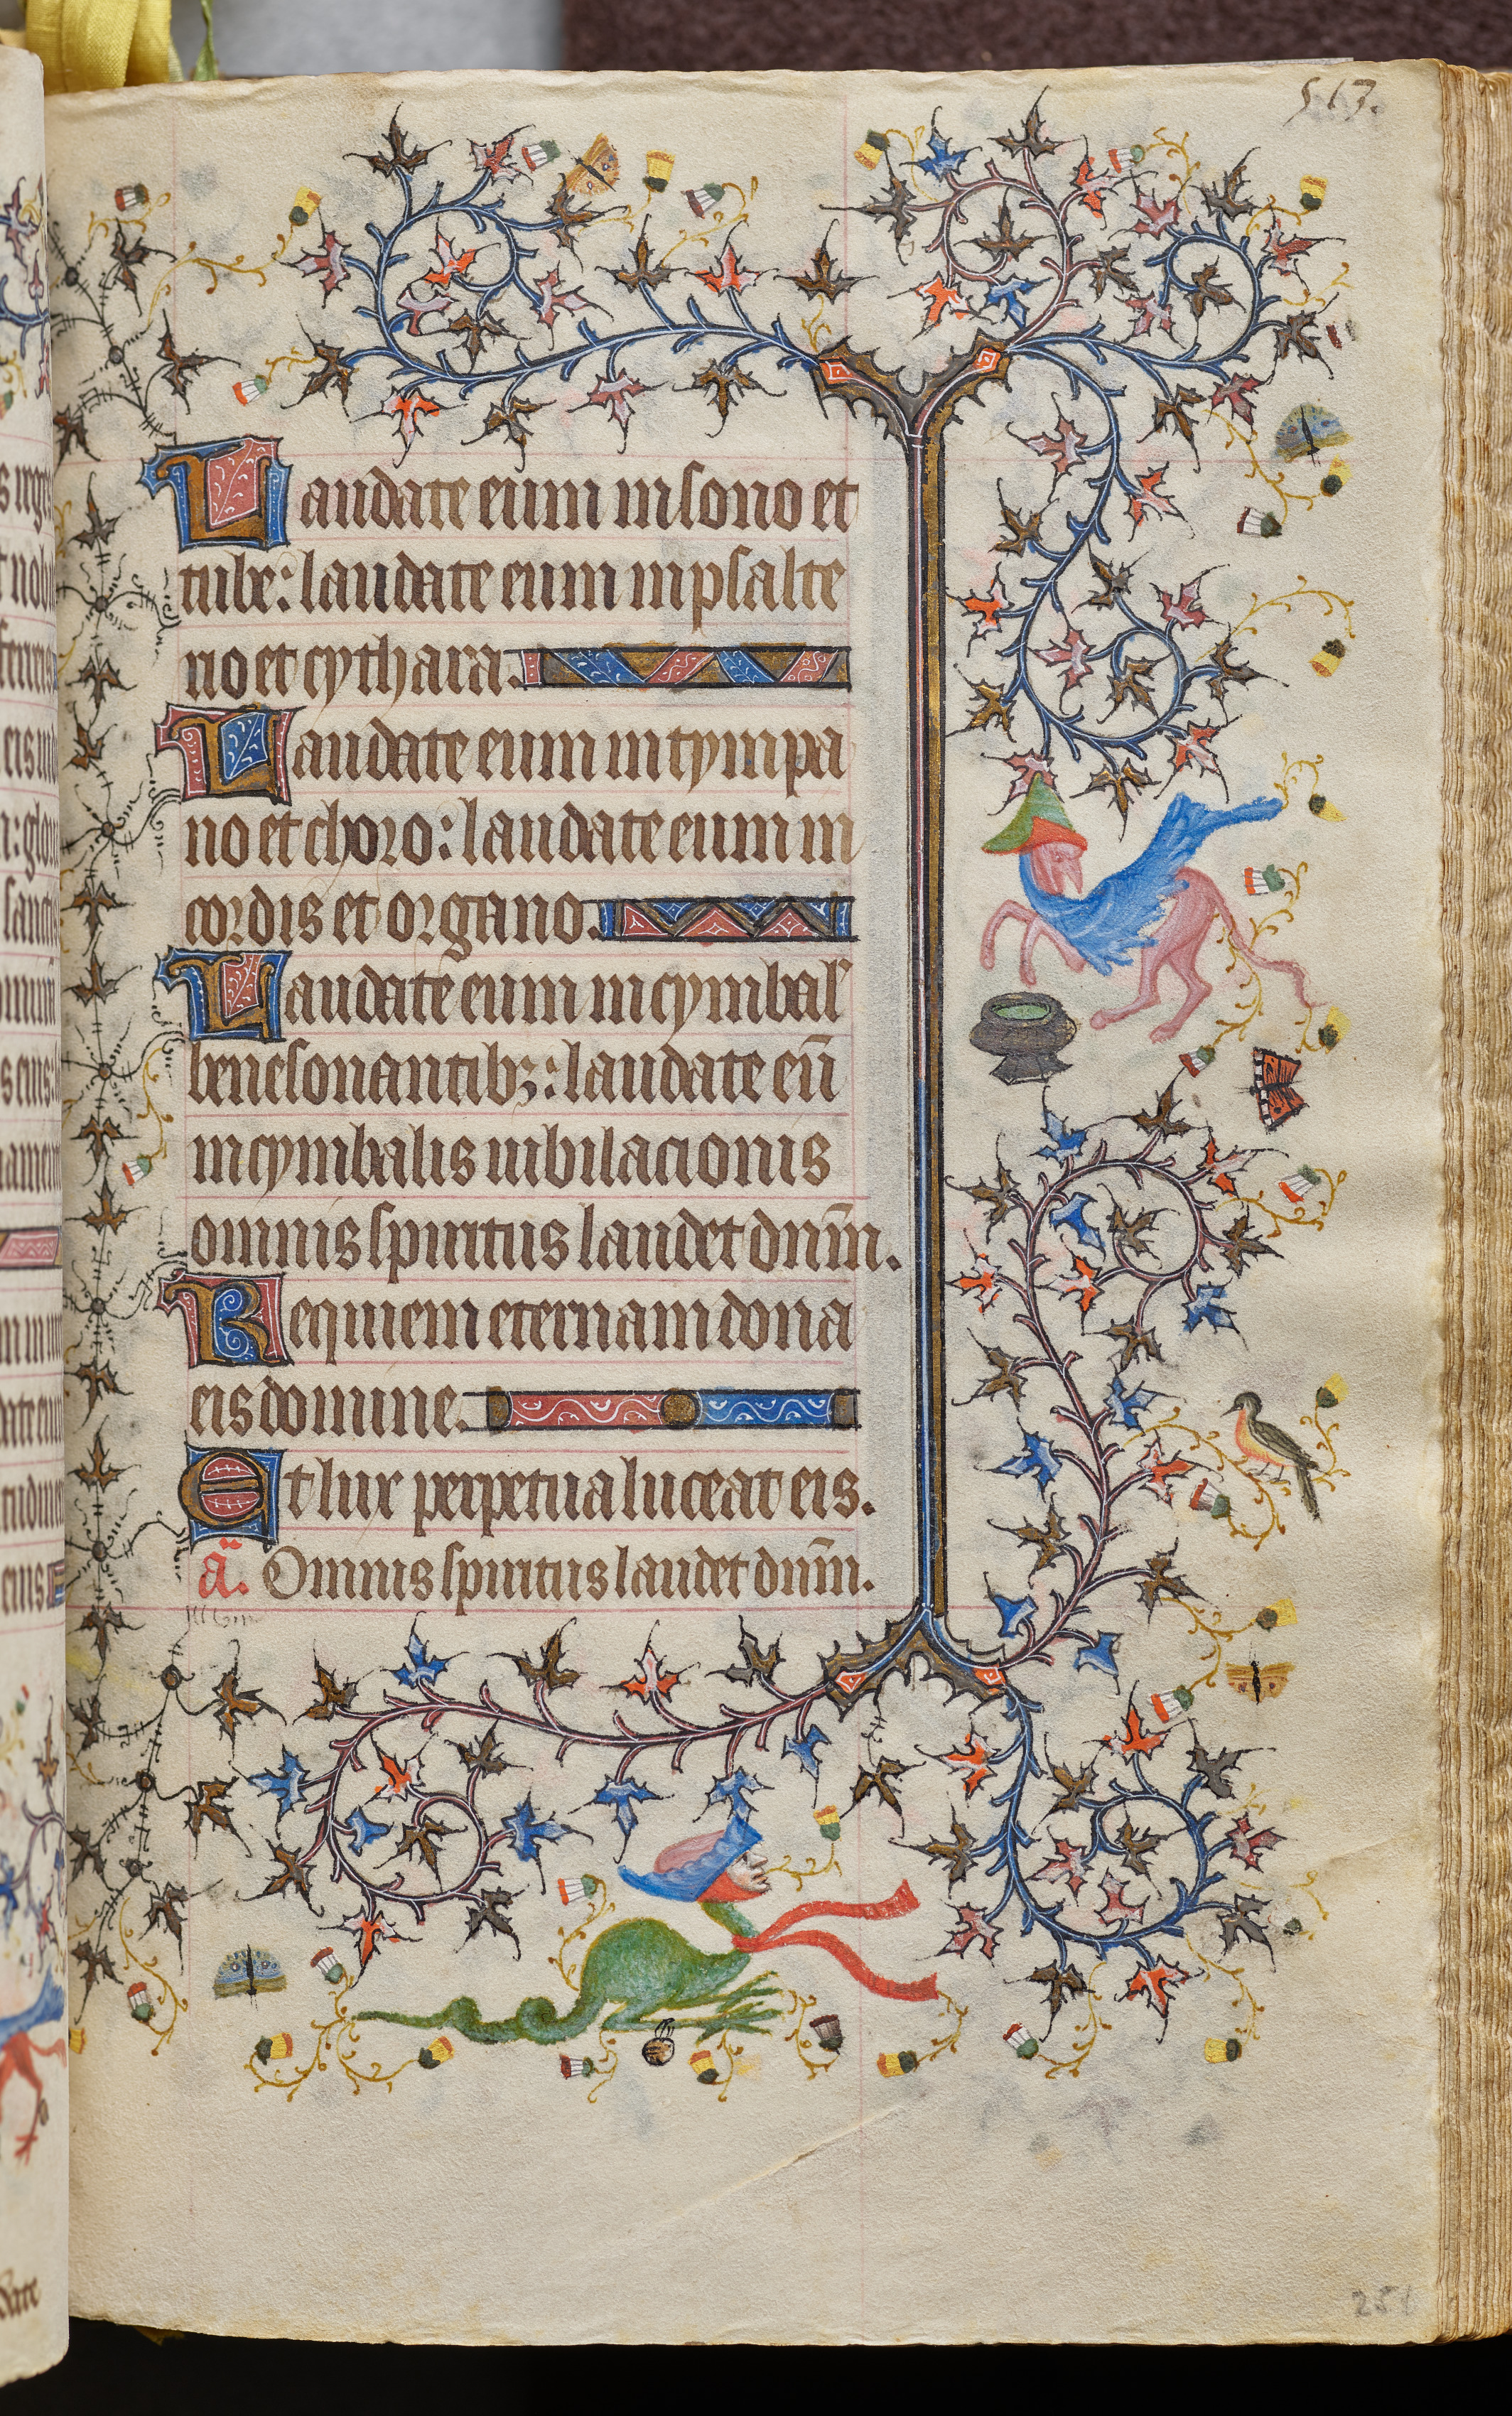 513.
Laudate eum in sono et
tube: laudate eum in psalte
rio et cythara.
Laudate eum in tympa
no et choro: laudate eum in
cordis et organo.
Laudate eum in cymbal'
benesonantibꝫ: laudate eū
in cymbalis iubilacionis
omnis spiritus laudet dn̄m.
Requiem eternam dona
eis domine.
Et lux perpetua luceat eis.
a͞. Omnis spiritus laudet dn̄m.